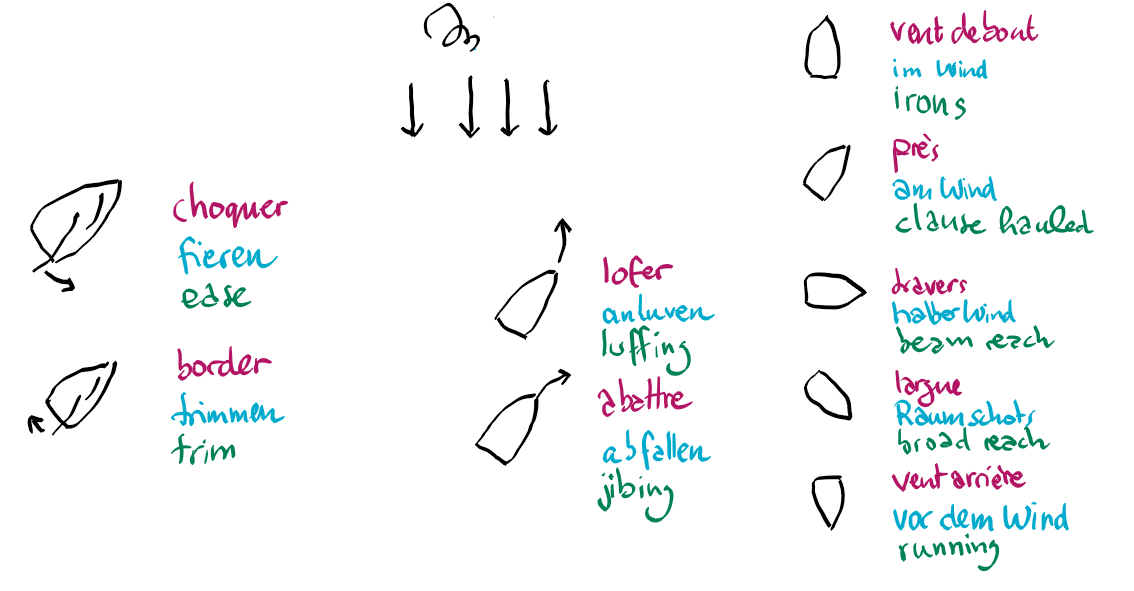 choquer
fieren
ease
border
trimmen
trim
lofer
anluven
luffing
abattre
abfallen
jibing
vent debout
im Wind
irons
près
am Wind
clause hauled
travers
halber Wind
beam reach
largue
Raumschots
broad reach
vent arrière
vor dem Wind
running